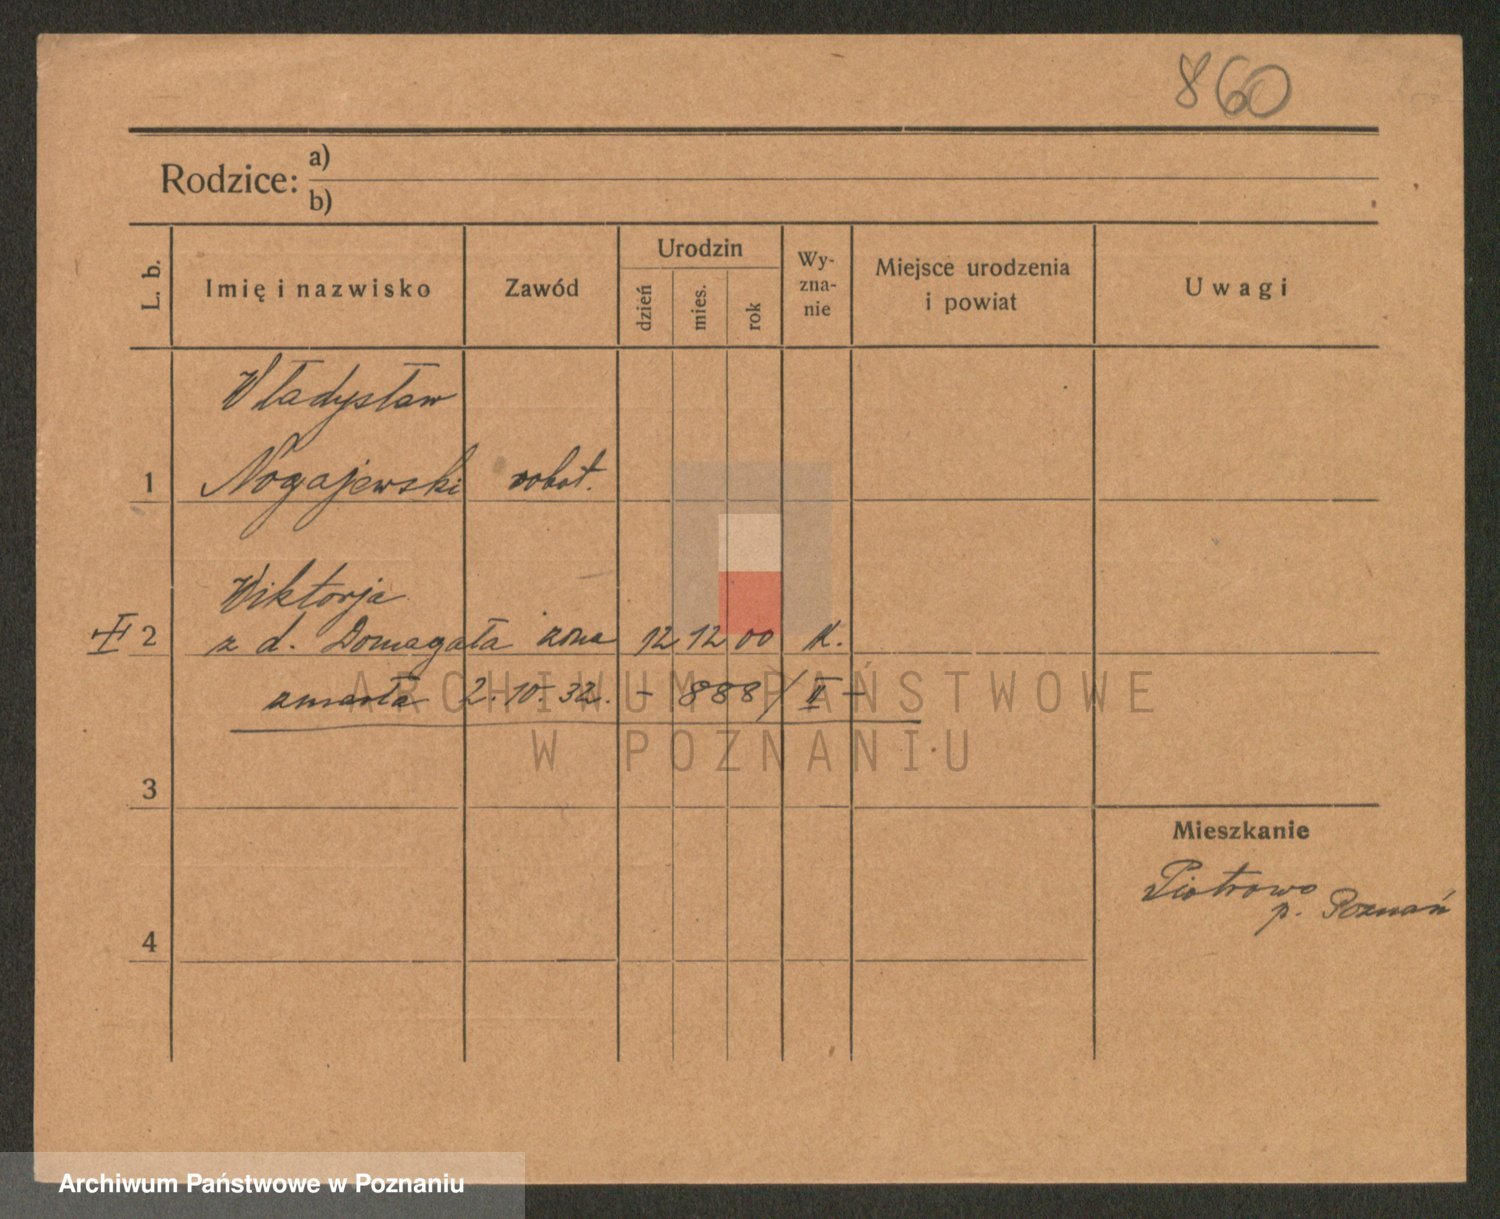 860
Rodzice: a)
b)
L. b.
Imię i nazwisko
Zawód
Urodzin
dzień
mies.
rok
Wy-
zna-
nie
Miejsce urodzenia
i powiat
Uwagi
Władysław
1 Nogajewski robot.
Wiktorja
2 z d. Domagała żona 12 12 00 k.
zmarła 2.10.32. - 888/II -
3
Mieszkanie
Piotrowo
p. Poznań
4
ARCHIWUM PAŃSTWOWE
W POZNANIU
Archiwum Państwowe w Poznaniu